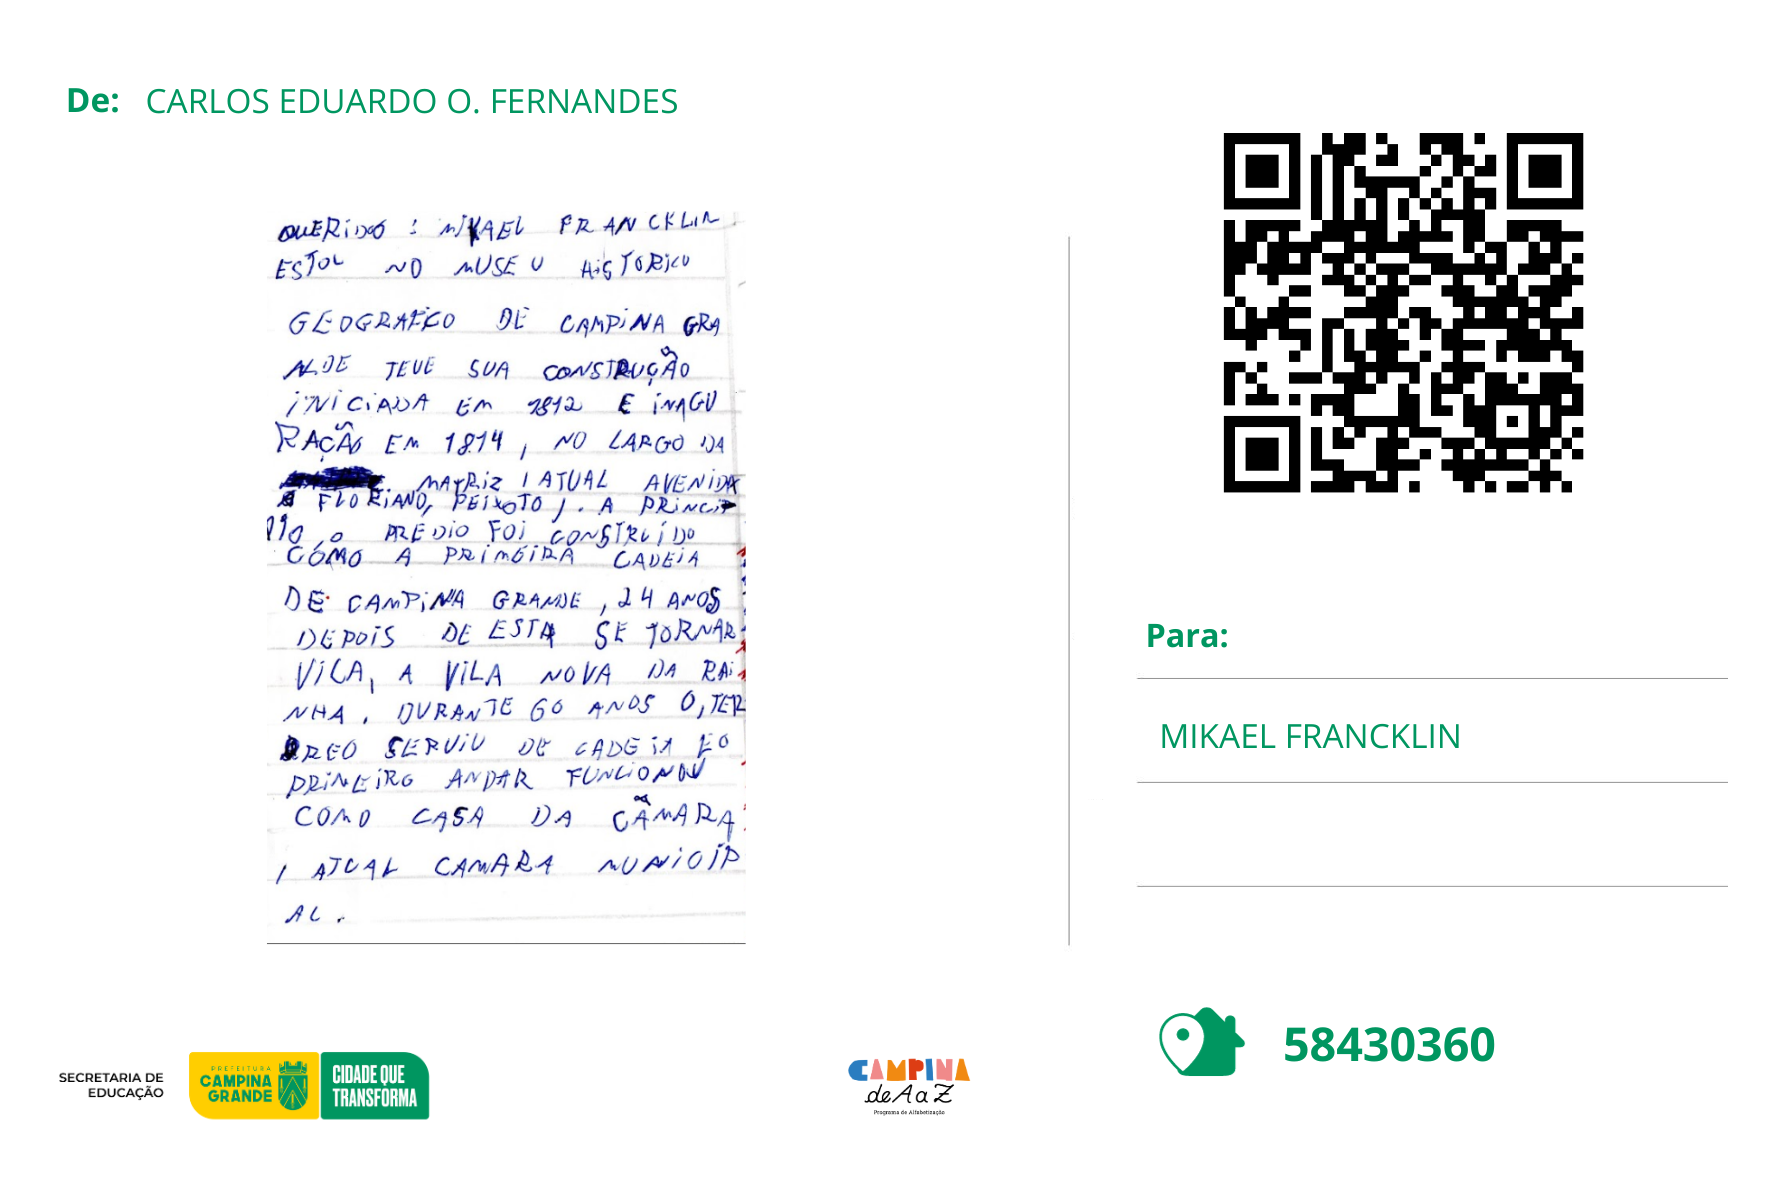 De: CARLOS EDUARDO O. FERNANDES
QUERIDO : MIKAEL FRANCKLIN
ESTOU NO MUSEU HISTORICO
GEOGRAFICO DE CAMPINA GRA
NDE TEVE SUA CONSTRUÇÃO
INICIADA EM 1812 E INAGU
RAÇÃO EM 1814, NO LARGO DA
MATRIZ ( ATUAL AVENIDA
FLORIANO, PEIXOTO ). A PRINCIP
PIO, O PREDIO FOI CONSTRUÍDO
COMO A PRIMEIRA CADEIA
DE CAMPINA GRANDE, 24 ANOS
DEPOIS DE ESTA SE TORNAR
VILA, A VILA NOVA DA RAI
NHA. DURANTE 60 ANOS O, TER
RREO SERVIU DE CADEIA E O
PRIMEIRO ANDAR FUNCIONOU
COMO CASA DA CÂMARA
( ATUAL CAMARA MUNICIP
AL.
Para:
MIKAEL FRANCKLIN
58430360
SECRETARIA DE
EDUCAÇÃO
PREFEITURA
CAMPINA
GRANDE
CIDADE QUE
TRANSFORMA
CAMPINA
de A a Z
Programa de Alfabetização